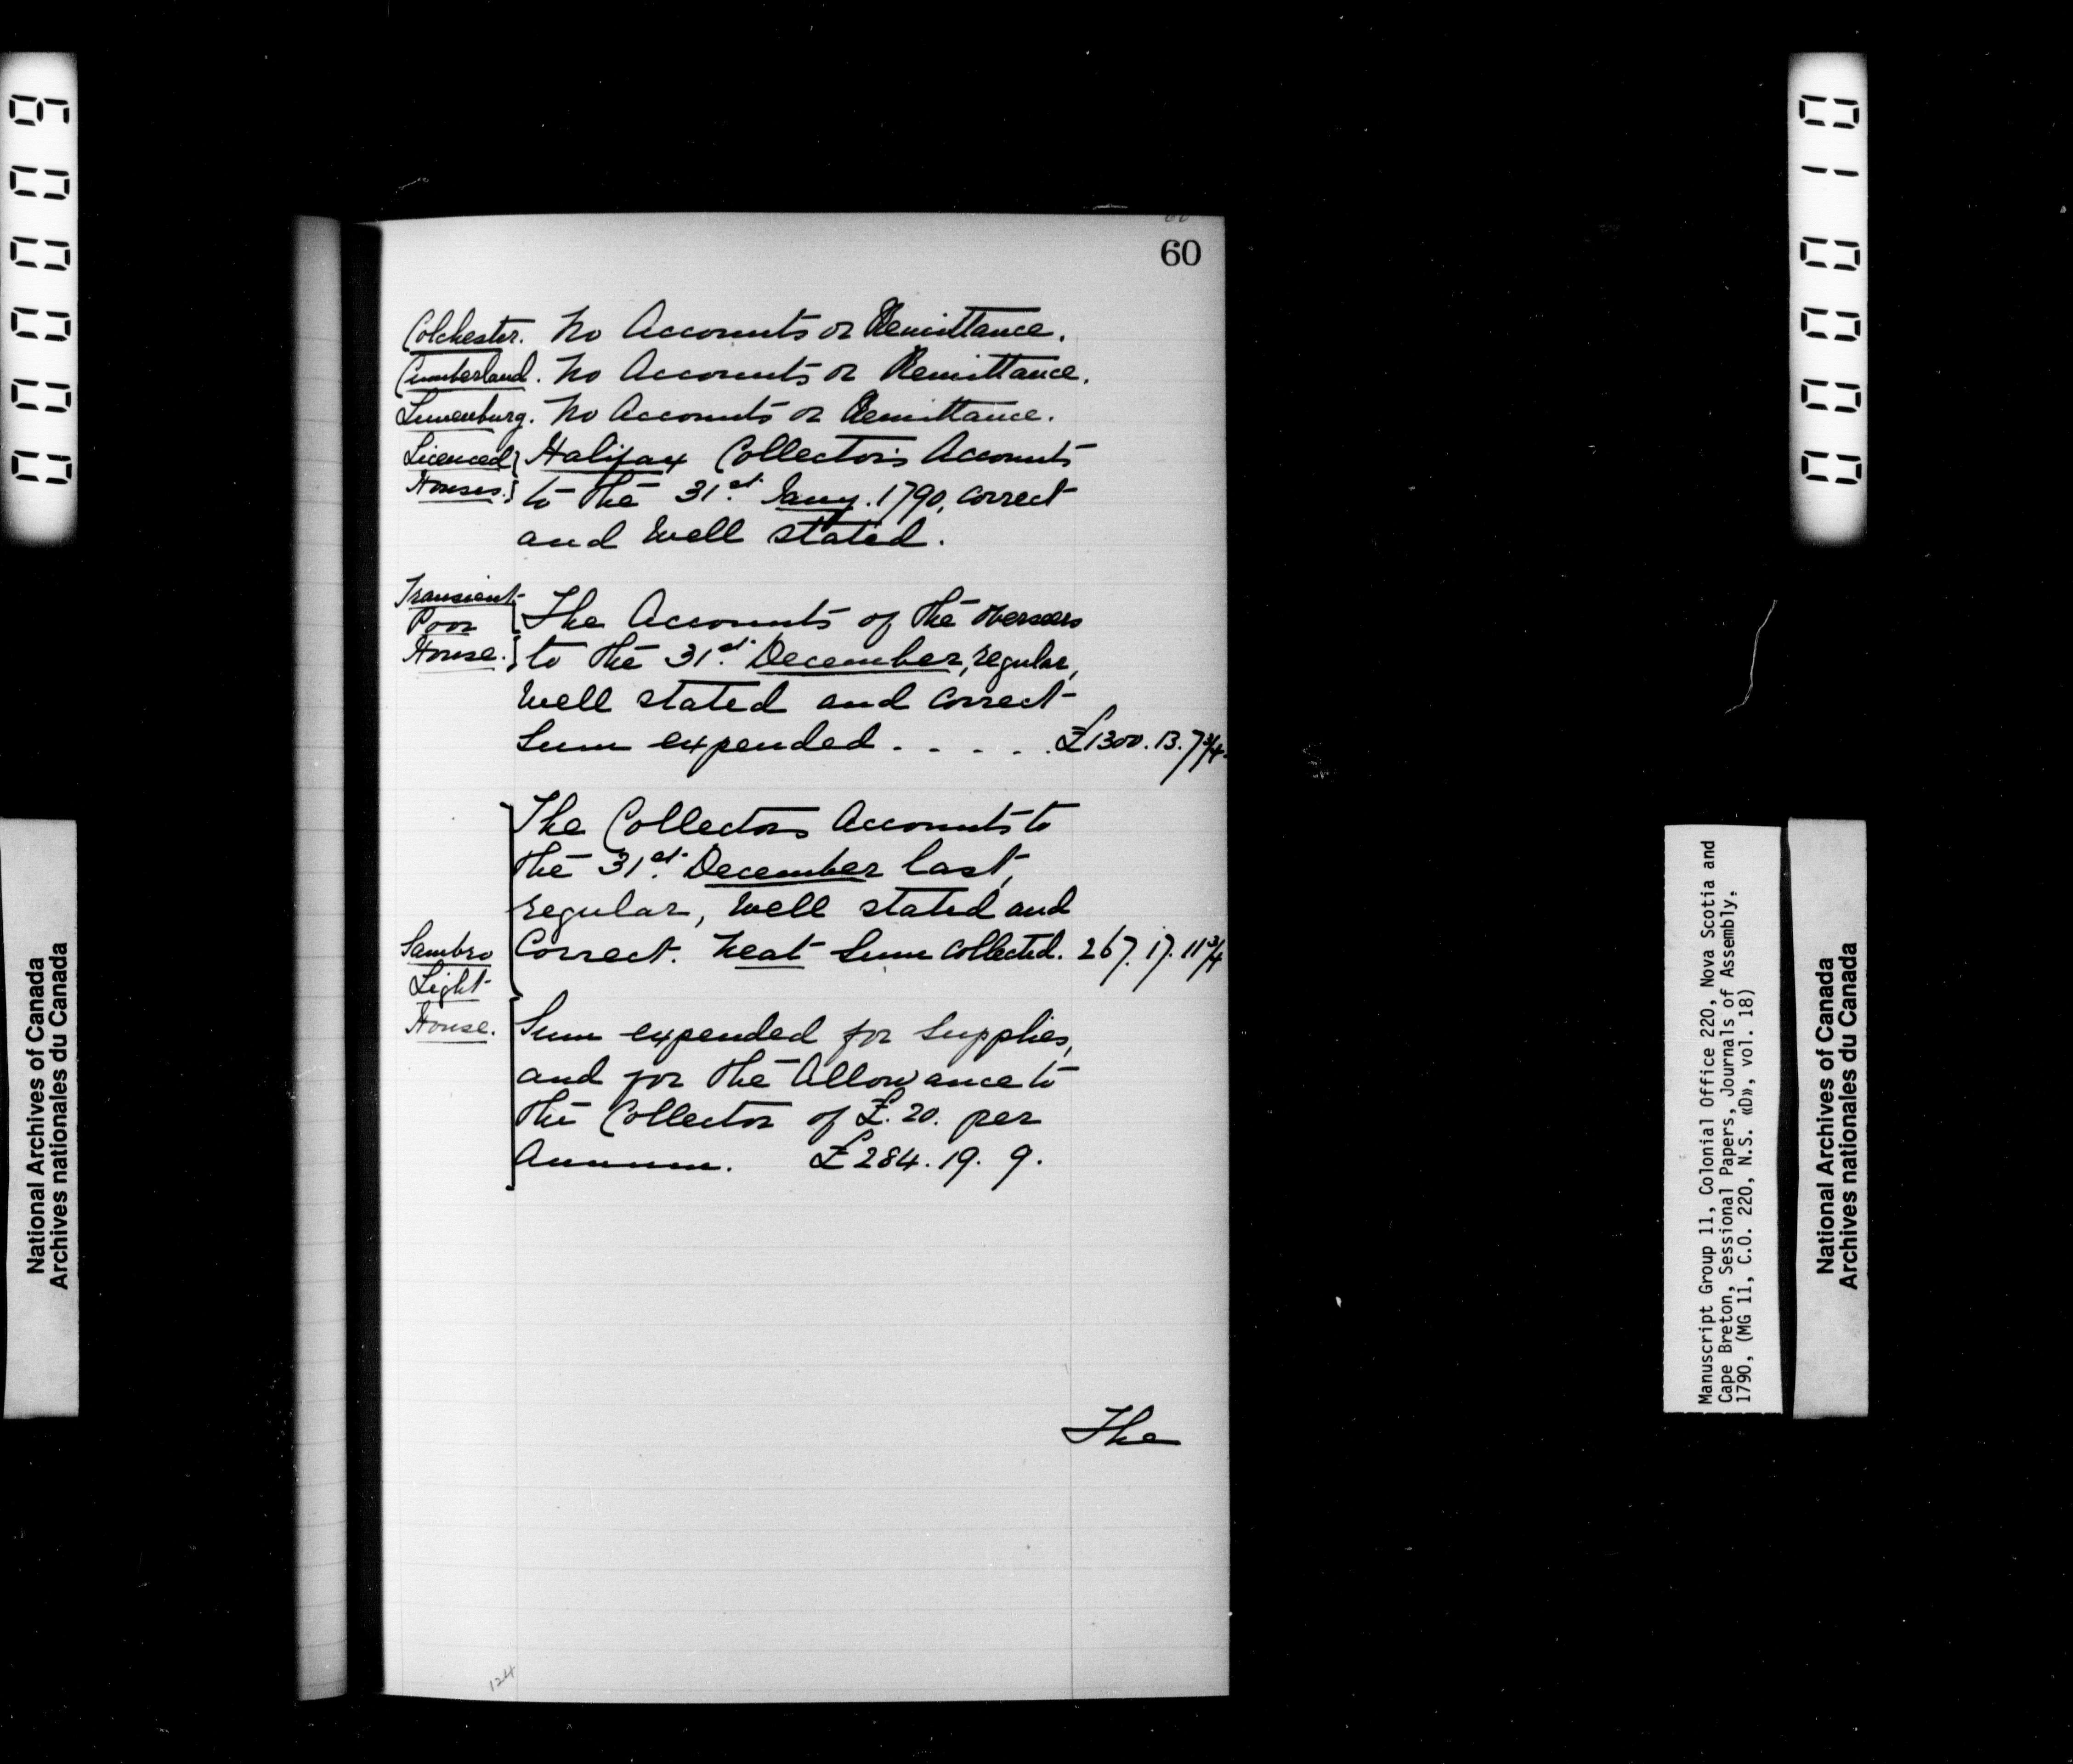 60
Colchester. No Accounts or Remittance.
Cumberland. No Accounts or Remittance.
Lunenburg. No Accounts or Remittance.
Licenced Halifax Collector's Accounts
Houses. to the 31st. Jany. 1790, correct
and Well stated.
Transient
Poor The Accounts of the Overseers
House. to the 31st. December, regular,
Well stated and correct
Sum expended . . . . . £1300. 13. 7 3/4
The Collectors Accounts to
the 31st. December last,
regular, Well stated and
Sambro Correct. Neat Sum Collected. 267. 17. 11 3/4
Light
House. Sum expended for Supplies,
and for the Allowance to
the Collector of £. 20. per
Annum. £284. 19. 9.
The
124
National Archives of Canada
Archives nationales du Canada
Manuscript Group 11, Colonial Office 220, Nova Scotia and
Cape Breton, Sessional Papers, Journals of Assembly,
1790, (MG 11, C.O. 220, N.S. «D», vol. 18)
National Archives of Canada
Archives nationales du Canada